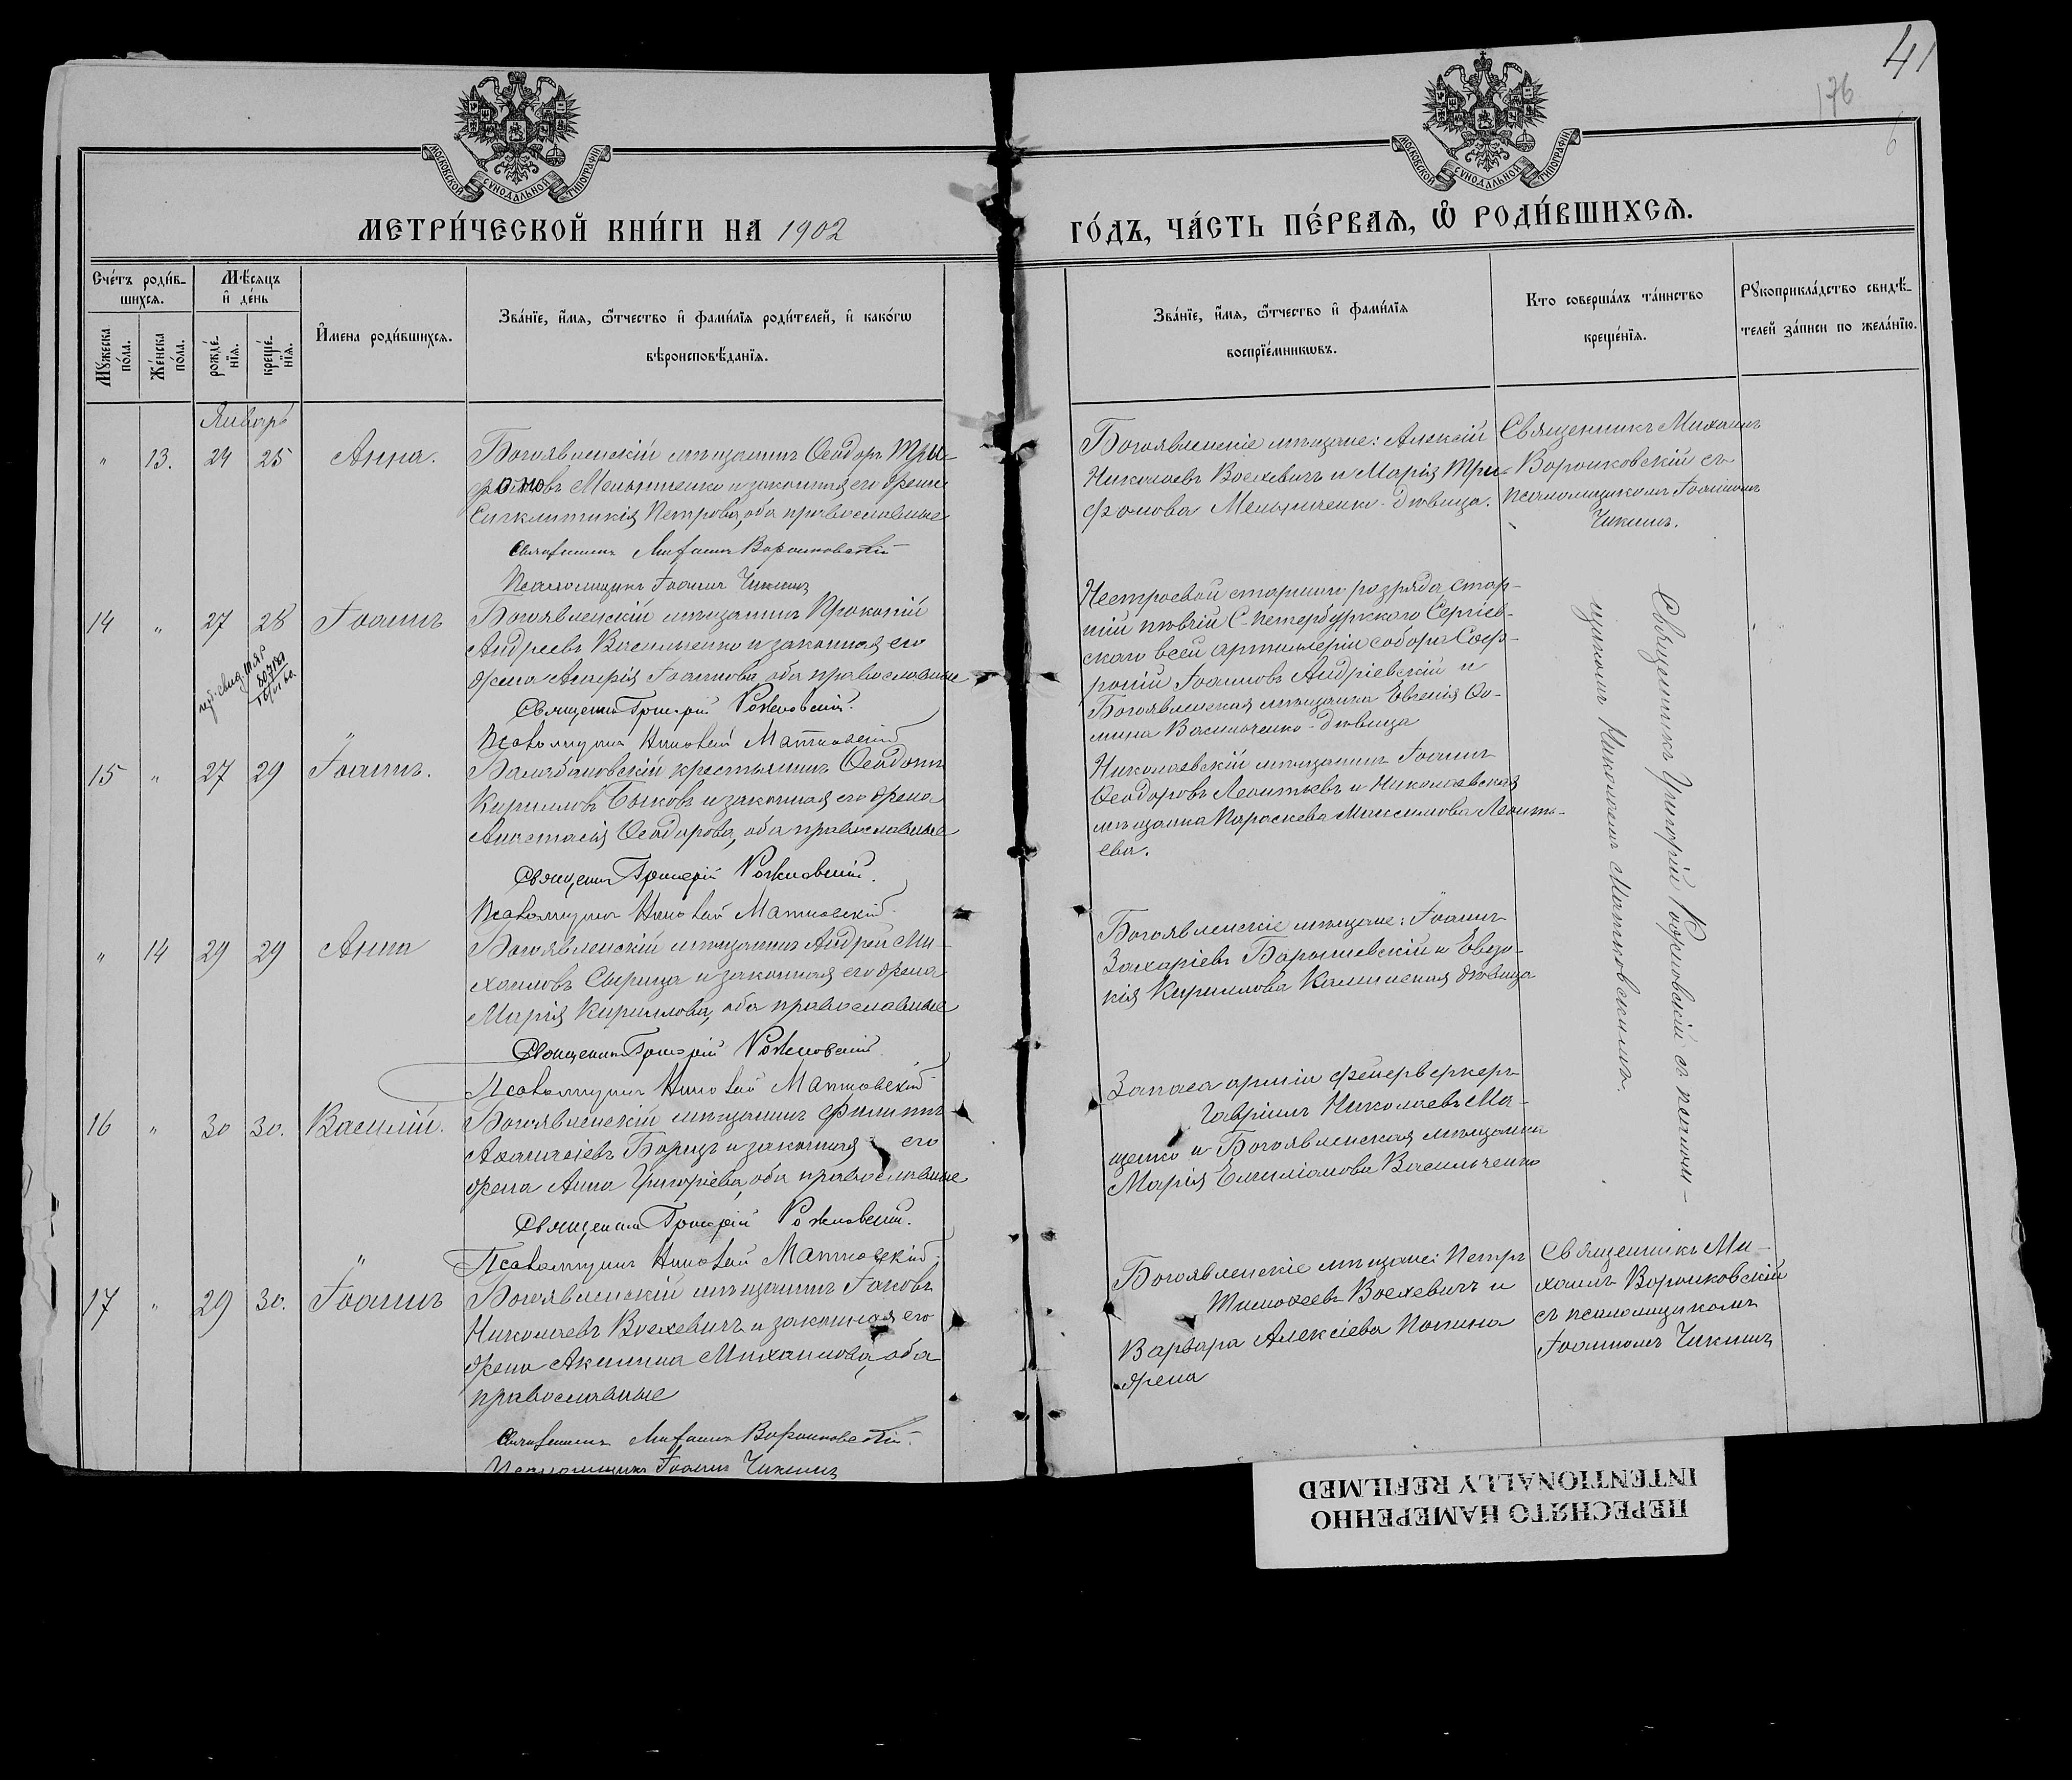 41
176
6
МОСКОВСКОЙ СѴНОДАЛЬНОЙ ТИПОГРАФІИ
МОСКОВСКОЙ СѴНОДАЛЬНОЙ ТИПОГРАФІИ
МЕТРИ́ЧЕСКОЙ КНИ́ГИ НА 1902
ГО́ДЪ, ЧА́СТЬ ПЕ́РВАѦ, Ѽ РОДИ́ВШИХСѦ.
Сче́тъ роди́в-
шихсѧ.
Мꙋ́жеска по́ла.
Же́нска по́ла.
Мѣ́сѧцъ
и҆ де́нь
рожде́-
нїѧ.
креще́-
нїѧ.
И҆мена роди́вшихсѧ.
Зва́нїе, и҆́мѧ, ѻ҆́тчество и҆ фами́лїѧ роди́телей, и҆ како́гѡ
вѣроисповѣ́данїѧ.
Зва́нїе, и҆́мѧ, ѻ҆́тчество и҆ фами́лїѧ
воспрїе́мникѡвъ.
Кто соверша́лъ та́инство
креще́нїѧ.
Рꙋкоприкла́дство свидѣ́-
телей за́писи по жела́нїю.
Январь
" 13. 24 25 Анна.
Богоявленскій мѣщанинъ Ѳеодоръ Три-
фоновъ Мельниченко и законная его жена
Сигклитикія Петрова, оба православные
Священникъ Михаилъ Воронковскій
Псаломщикъ Іоаннъ Чикинъ
Богоявленскіе мѣщане: Алексій
Николаевъ Воехевичъ и Марія Три-
фонова Мельниченко - дѣвица.
Священникъ Михаилъ
Воронковскій съ
псаломщикомъ Іоанномъ
Чикинъ.
14 " 27 28 Іоаннъ
Богоявленскій мѣщанинъ Прокопій
Андреевъ Васильченко и законная его
жена Марія Іоаннова, оба православные
Священникъ Григорій Рожновскій.
Псаломщикъ Николай Матковскій
Нестроевой старшаго разряда, стар-
шій пѣвчій С-Петербургскаго Сергіев-
скаго всей артиллеріи собора Соф-
роній Іоанновъ Андріевскій и
Богоявленская мѣщанка Евгенія Ѳо-
мина Васильченко - дѣвица
Священникъ Григорій Рожновскій съ псалом-
щикомъ Николаемъ Матковскимъ.
15 " 27 29 Іоаннъ.
Балабановскій крестьянинъ Ѳеодотъ
Кирилловъ Быковъ и законная его жена
Анастасія Ѳеодорова, оба православные
Священникъ Григорій Рожновскій.
Псаломщикъ Николай Матковскій
Николаевскій мѣщанинъ Іоаннъ
Ѳеодоровъ Леонтьевъ и Николаевская
мѣщанка Параскева Максимова Леонть-
ева.
" 14 29 29 Анна
Богоявленскій мѣщанинъ Андрей Ми-
хаиловъ Сырица и законная его жена
Марія Кириллова, оба православные
Священникъ Григорій Рожновскій
Псаломщикъ Николай Матковскій
Богоявленскіе мѣщане: Іоаннъ
Захаріевъ Барышевскій и Евдо-
кія Кириллова Калинская дѣвица
16 " 30 30. Василій.
Богоявленскій мѣщанинъ Филиппъ
Аѳанасіевъ Борицъ и законная его
жена Анна Григоріева, оба православные
Священникъ Григорій Рожновскій.
Псаломщикъ Николай Матковскій
Запаса арміи фейерверкеръ
Гавріилъ Николаевъ Ма-
щенко и Богоявленская мѣщанка
Марія Емиліанова Васильченко
17 " 29 30. Іоаннъ
Богоявленскій мѣщанинъ Іаковъ
Николаевъ Воехевичъ и законная его
жена Акилина Михаилова, оба
православные
Священникъ Михаилъ Воронковскій.
Псаломщикъ Іоаннъ Чикинъ
Богоявленскіе мѣщане: Петръ
Тимоѳеевъ Воехевичъ и
Варвара Алексіева Попина
жена
Священникъ Ми-
хаилъ Воронковскій
съ псаломщикомъ
Іоанномъ Чикинъ
ПЕРЕСНЯТО НАМЕРЕННО
INTENTIONALLY REFILMED